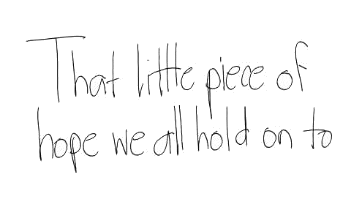 That little piece of
hope we all hold on to